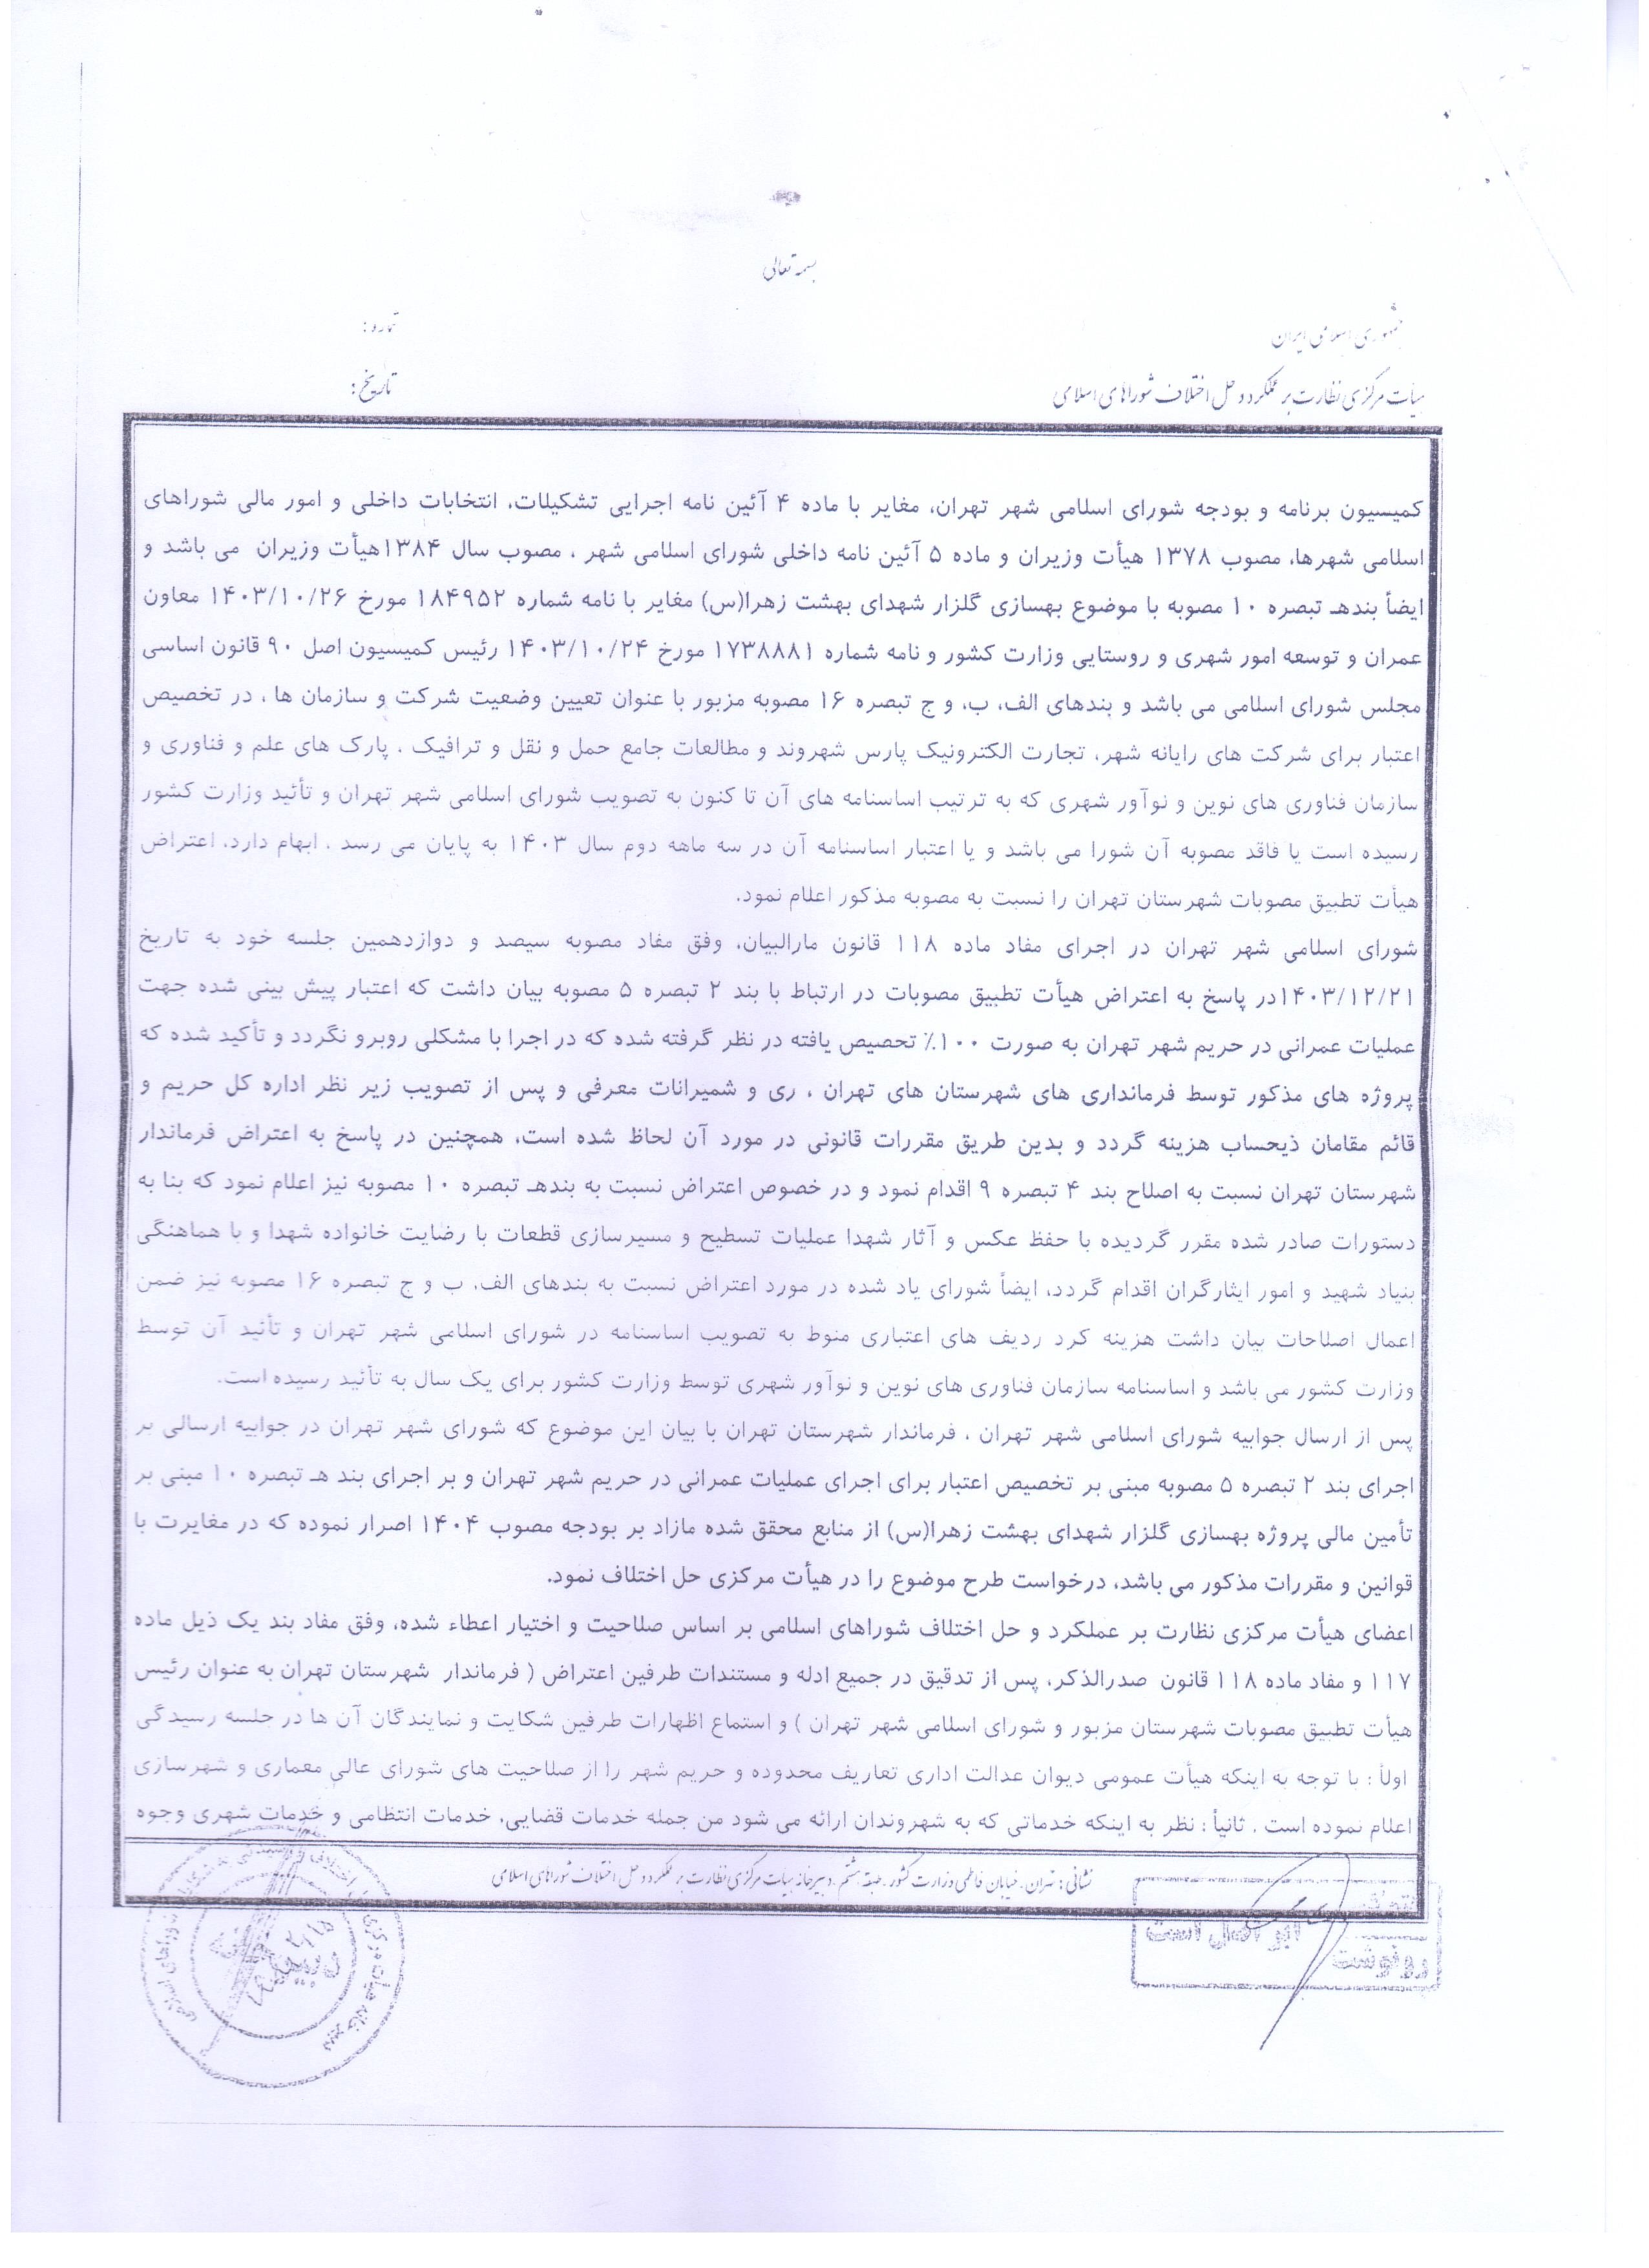 بسمه تعالی
جمهوری اسلامی ایران
شماره :
هیأت مرکزی نظارت بر عملکرد و حل اختلاف شوراهای اسلامی
تاریخ :
کمیسیون برنامه و بودجه شورای اسلامی شهر تهران، مغایر با ماده ۴ آئین نامه اجرایی تشکیلات، انتخابات داخلی و امور مالی شوراهای
اسلامی شهرها، مصوب ۱۳۷۸ هیأت وزیران و ماده ۵ آئین نامه داخلی شورای اسلامی شهر ، مصوب سال ۱۳۸۴هیأت وزیران می باشد و
ایضاً بندهـ تبصره ۱۰ مصوبه با موضوع بهسازی گلزار شهدای بهشت زهرا(س) مغایر با نامه شماره ۱۸۴۹۵۲ مورخ ۱۴۰۳/۱۰/۲۶ معاون
عمران و توسعه امور شهری و روستایی وزارت کشور و نامه شماره ۱۷۳۸۸۸۱ مورخ ۱۴۰۳/۱۰/۲۴ رئیس کمیسیون اصل ۹۰ قانون اساسی
مجلس شورای اسلامی می باشد و بندهای الف، ب، و ج تبصره ۱۶ مصوبه مزبور با عنوان تعیین وضعیت شرکت و سازمان ها ، در تخصیص
اعتبار برای شرکت های رایانه شهر، تجارت الکترونیک پارس شهروند و مطالعات جامع حمل و نقل و ترافیک ، پارک های علم و فناوری و
سازمان فناوری های نوین و نوآور شهری که به ترتیب اساسنامه های آن تا کنون به تصویب شورای اسلامی شهر تهران و تأئید وزارت کشور
رسیده است یا فاقد مصوبه آن شورا می باشد و یا اعتبار اساسنامه آن در سه ماهه دوم سال ۱۴۰۳ به پایان می رسد ، ابهام دارد، اعتراض
هیأت تطبیق مصوبات شهرستان تهران را نسبت به مصوبه مذکور اعلام نمود.
شورای اسلامی شهر تهران در اجرای مفاد ماده ۱۱۸ قانون مارالبیان، وفق مفاد مصوبه سیصد و دوازدهمین جلسه خود به تاریخ
۱۴۰۳/۱۲/۲۱در پاسخ به اعتراض هیأت تطبیق مصوبات در ارتباط با بند ۲ تبصره ۵ مصوبه بیان داشت که اعتبار پیش بینی شده جهت
عملیات عمرانی در حریم شهر تهران به صورت ۱۰۰٪ تحصیص یافته در نظر گرفته شده که در اجرا با مشکلی روبرو نگردد و تأکید شده که
پروژه های مذکور توسط فرمانداری های شهرستان های تهران ، ری و شمیرانات معرفی و پس از تصویب زیر نظر اداره کل حریم و
قائم مقامان ذیحساب هزینه گردد و بدین طریق مقررات قانونی در مورد آن لحاظ شده است، همچنین در پاسخ به اعتراض فرماندار
شهرستان تهران نسبت به اصلاح بند ۴ تبصره ۹ اقدام نمود و در خصوص اعتراض نسبت به بندهـ تبصره ۱۰ مصوبه نیز اعلام نمود که بنا به
دستورات صادر شده مقرر گردیده با حفظ عکس و آثار شهدا عملیات تسطیح و مسیرسازی قطعات با رضایت خانواده شهدا و با هماهنگی
بنیاد شهید و امور ایثارگران اقدام گردد، ایضاً شورای یاد شده در مورد اعتراض نسبت به بندهای الف، ب و ج تبصره ۱۶ مصوبه نیز ضمن
اعمال اصلاحات بیان داشت هزینه کرد ردیف های اعتباری منوط به تصویب اساسنامه در شورای اسلامی شهر تهران و تأئید آن توسط
وزارت کشور می باشد و اساسنامه سازمان فناوری های نوین و نوآور شهری توسط وزارت کشور برای یک سال به تأئید رسیده است.
پس از ارسال جوابیه شورای اسلامی شهر تهران ، فرماندار شهرستان تهران با بیان این موضوع که شورای شهر تهران در جوابیه ارسالی بر
اجرای بند ۲ تبصره ۵ مصوبه مبنی بر تخصیص اعتبار برای اجرای عملیات عمرانی در حریم شهر تهران و بر اجرای بند هـ تبصره ۱۰ مبنی بر
تأمین مالی پروژه بهسازی گلزار شهدای بهشت زهرا(س) از منابع محقق شده مازاد بر بودجه مصوب ۱۴۰۴ اصرار نموده که در مغایرت با
قوانین و مقررات مذکور می باشد، درخواست طرح موضوع را در هیأت مرکزی حل اختلاف نمود.
اعضای هیأت مرکزی نظارت بر عملکرد و حل اختلاف شوراهای اسلامی بر اساس صلاحیت و اختیار اعطاء شده، وفق مفاد بند یک ذیل ماده
۱۱۷ و مفاد ماده ۱۱۸ قانون صدرالذکر، پس از تدقیق در جمیع ادله و مستندات طرفین اعتراض ( فرماندار شهرستان تهران به عنوان رئیس
هیأت تطبیق مصوبات شهرستان مزبور و شورای اسلامی شهر تهران ) و استماع اظهارات طرفین شکایت و نمایندگان آن ها در جلسه رسیدگی
اولاً : با توجه به اینکه هیأت عمومی دیوان عدالت اداری تعاریف محدوده و حریم شهر را از صلاحیت های شورای عالی معماری و شهرسازی
اعلام نموده است . ثانیاً : نظر به اینکه خدماتی که به شهروندان ارائه می شود من جمله خدمات قضایی، خدمات انتظامی و خدمات شهری وجوه
نشانی : تهران . خیابان فاطمی وزارت کشور . طبقه هشتم . دبیرخانه هیأت مرکزی نظارت بر عملکرد و حل اختلاف شوراهای اسلامی
برابر اصل است
رونوشت